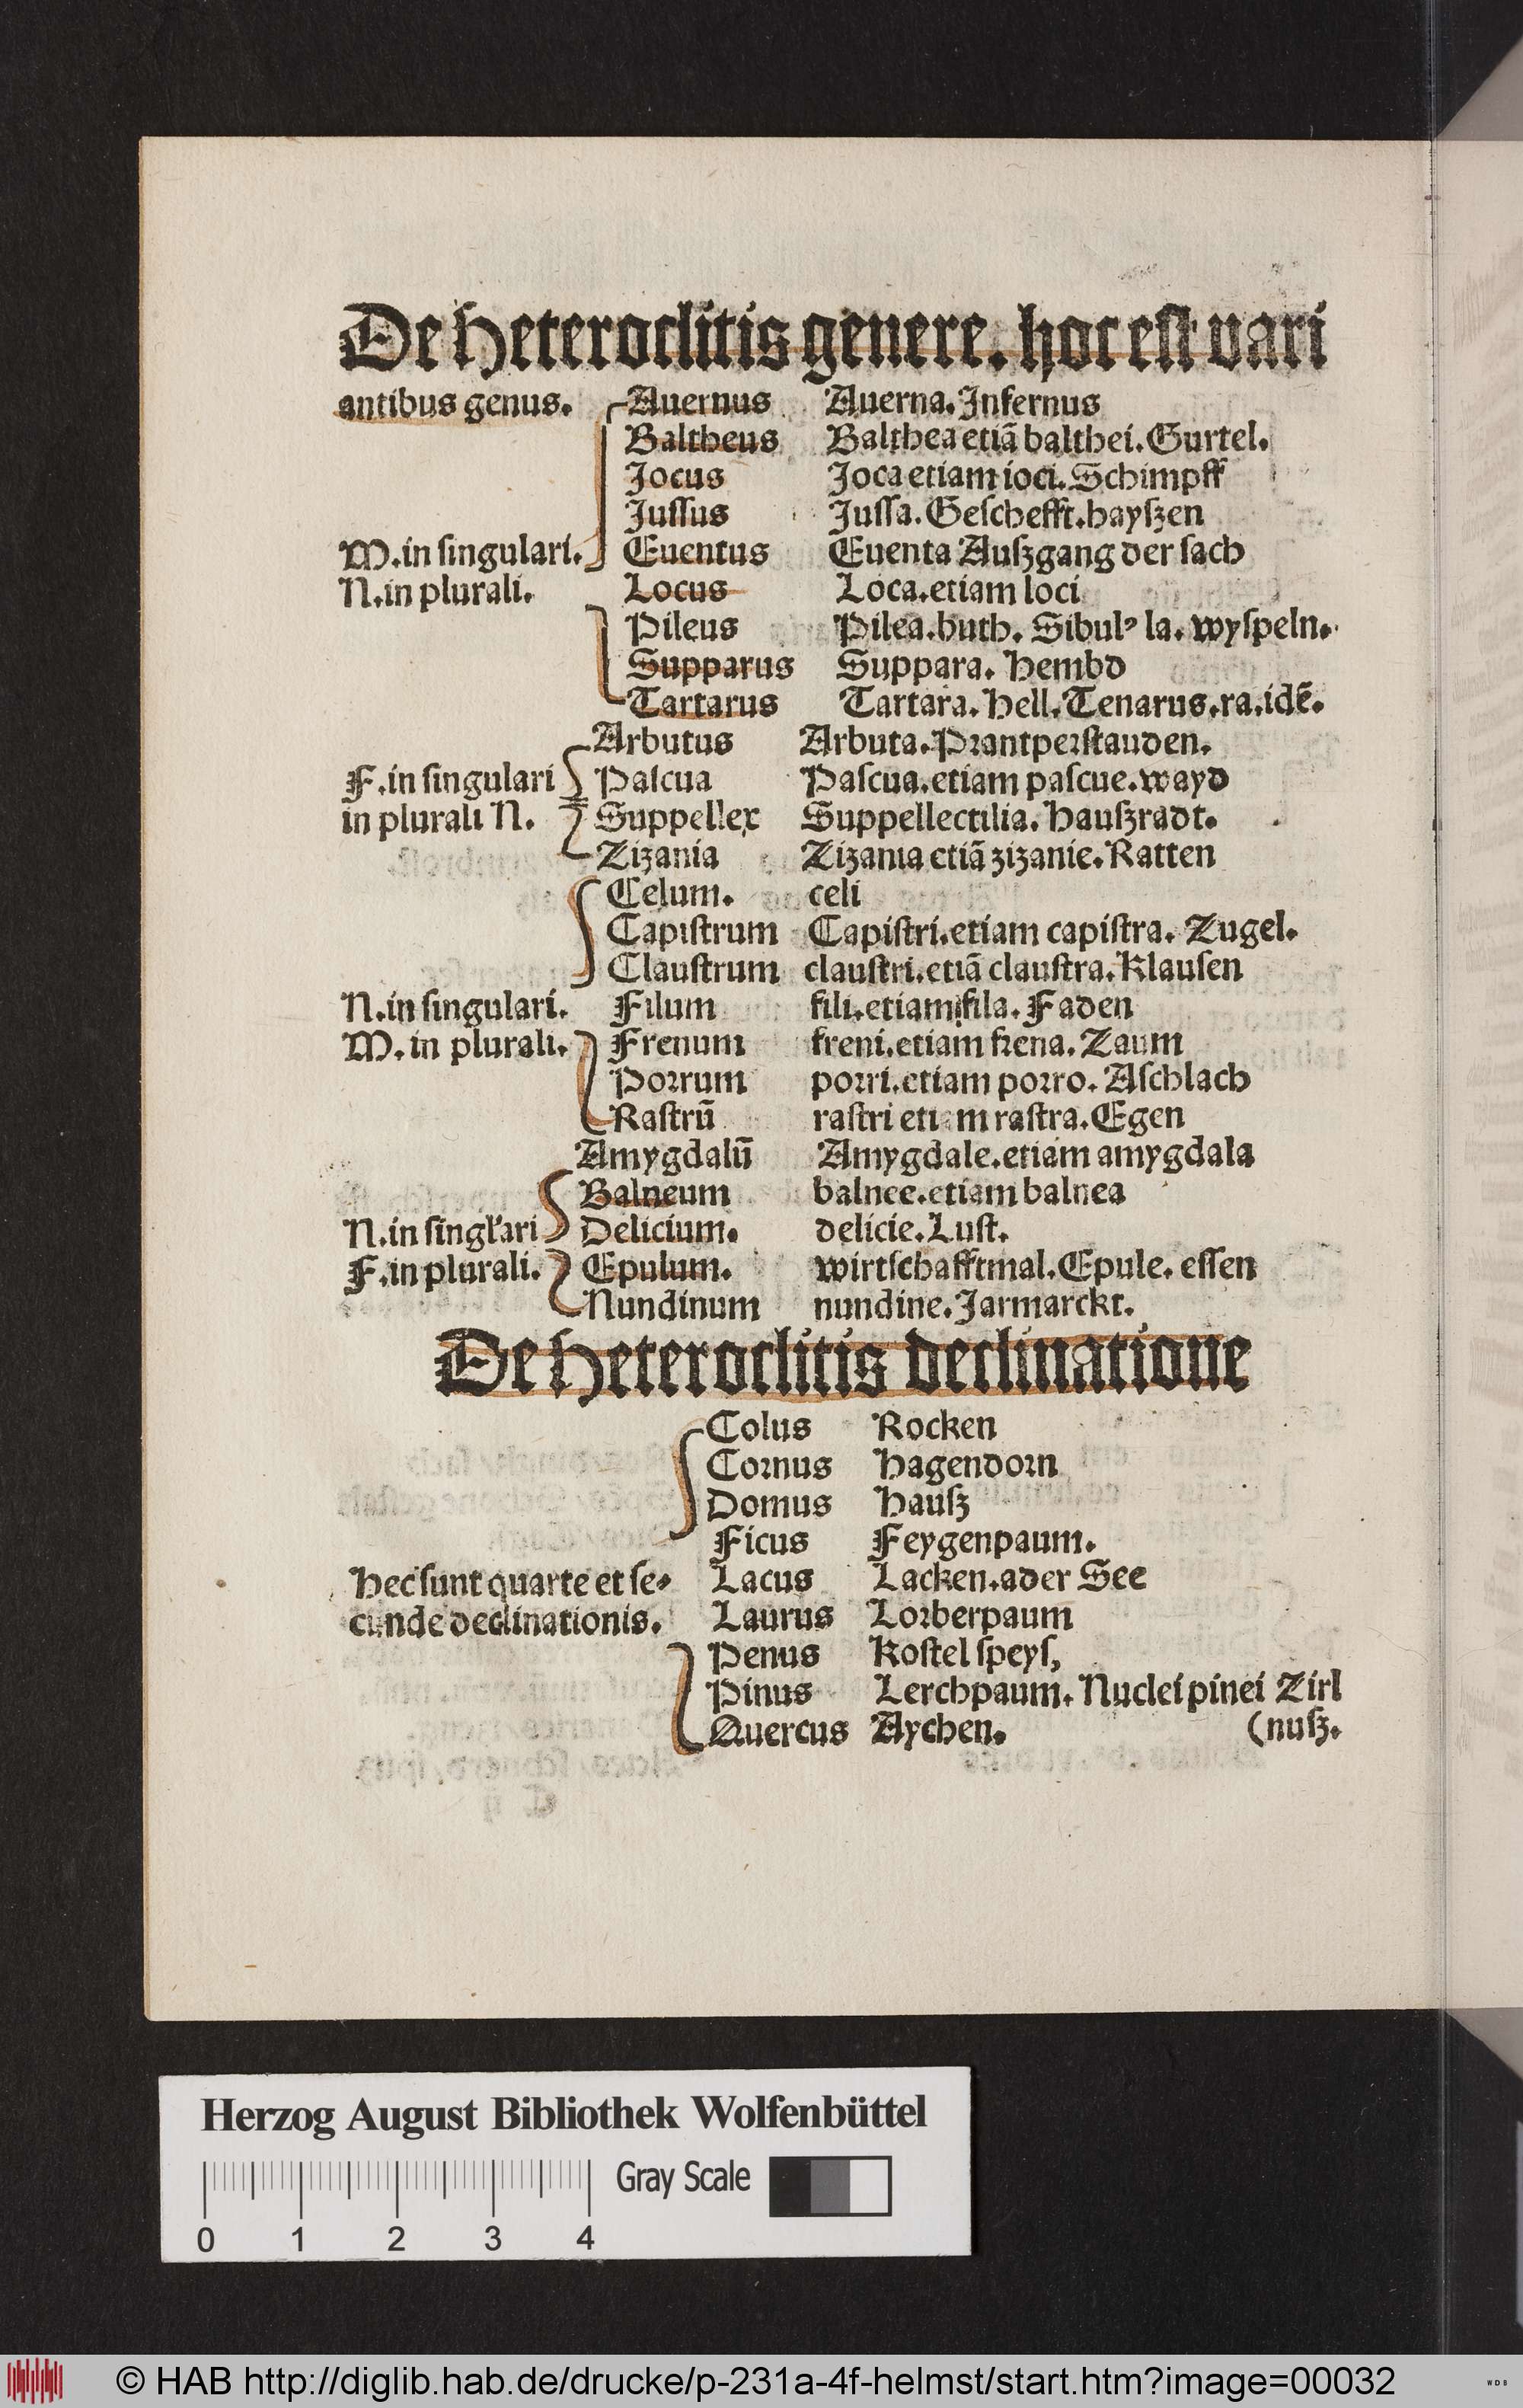 De Heteroclitis genere. hoc est vari
antibus genus. Auernus Auerna. Infernus
Baltheus Balthea etiā balthei. Gurtel.
Jocus Joca etiam ioci. Schimpff
Jussus Jussa. Geschefft. hayszen
M. in singulari. Euentus Euenta Auszgang der sach
N. in plurali. Locus Loca. etiam loci
Pileus Pilea. huth. Sibulꝰ la. wyspeln.
Supparus Suppara. Hembd
Tartarus Tartara. Hell. Tenarus. ra. idē.
Arbutus Arbuta. Prantperstauden.
F. in singulari Pascua Pascua. etiam pascue. wayd
in plurali N. Suppellex Suppellectilia. Hauszradt.
Zizania Zizania etiā zizanie. Ratten
Celum. celi
Capistrum Capistri. etiam capistra. Zugel.
Claustrum claustri. etiā claustra. Klausen
N. in singulari. Filum fili. etiam fila. Faden
M. in plurali. Frenum freni. etiam frena. Zaum
Porrum porri. etiam porro. Aschlach
Rastrū rastri etiam rastra. Egen
Amygdalū Amygdale. etiam amygdala
Balneum balnee. etiam balnea
N. in singl'ari Delicium. delicie. Lust.
F. in plurali. Epulum. wirtschafftmal. Epule. essen
Nundinum nundine. Jarmarckt.
De Heteroclitis declinatione
Colus Rocken
Cornus Hagendorn
Domus Hausz
Ficus Feygenpaum.
Hec sunt quarte et se- Lacus Lacken. ader See
cunde declinationis. Laurus Lorberpaum
Penus Kostel speys,
Pinus Lerchpaum. Nuclei pinei Zirl
Quercus Aychen. (nusz.
Herzog August Bibliothek Wolfenbüttel
Gray Scale
0 1 2 3 4
© HAB http://diglib.hab.de/drucke/p-231a-4f-helmst/start.htm?image=00032
WDB